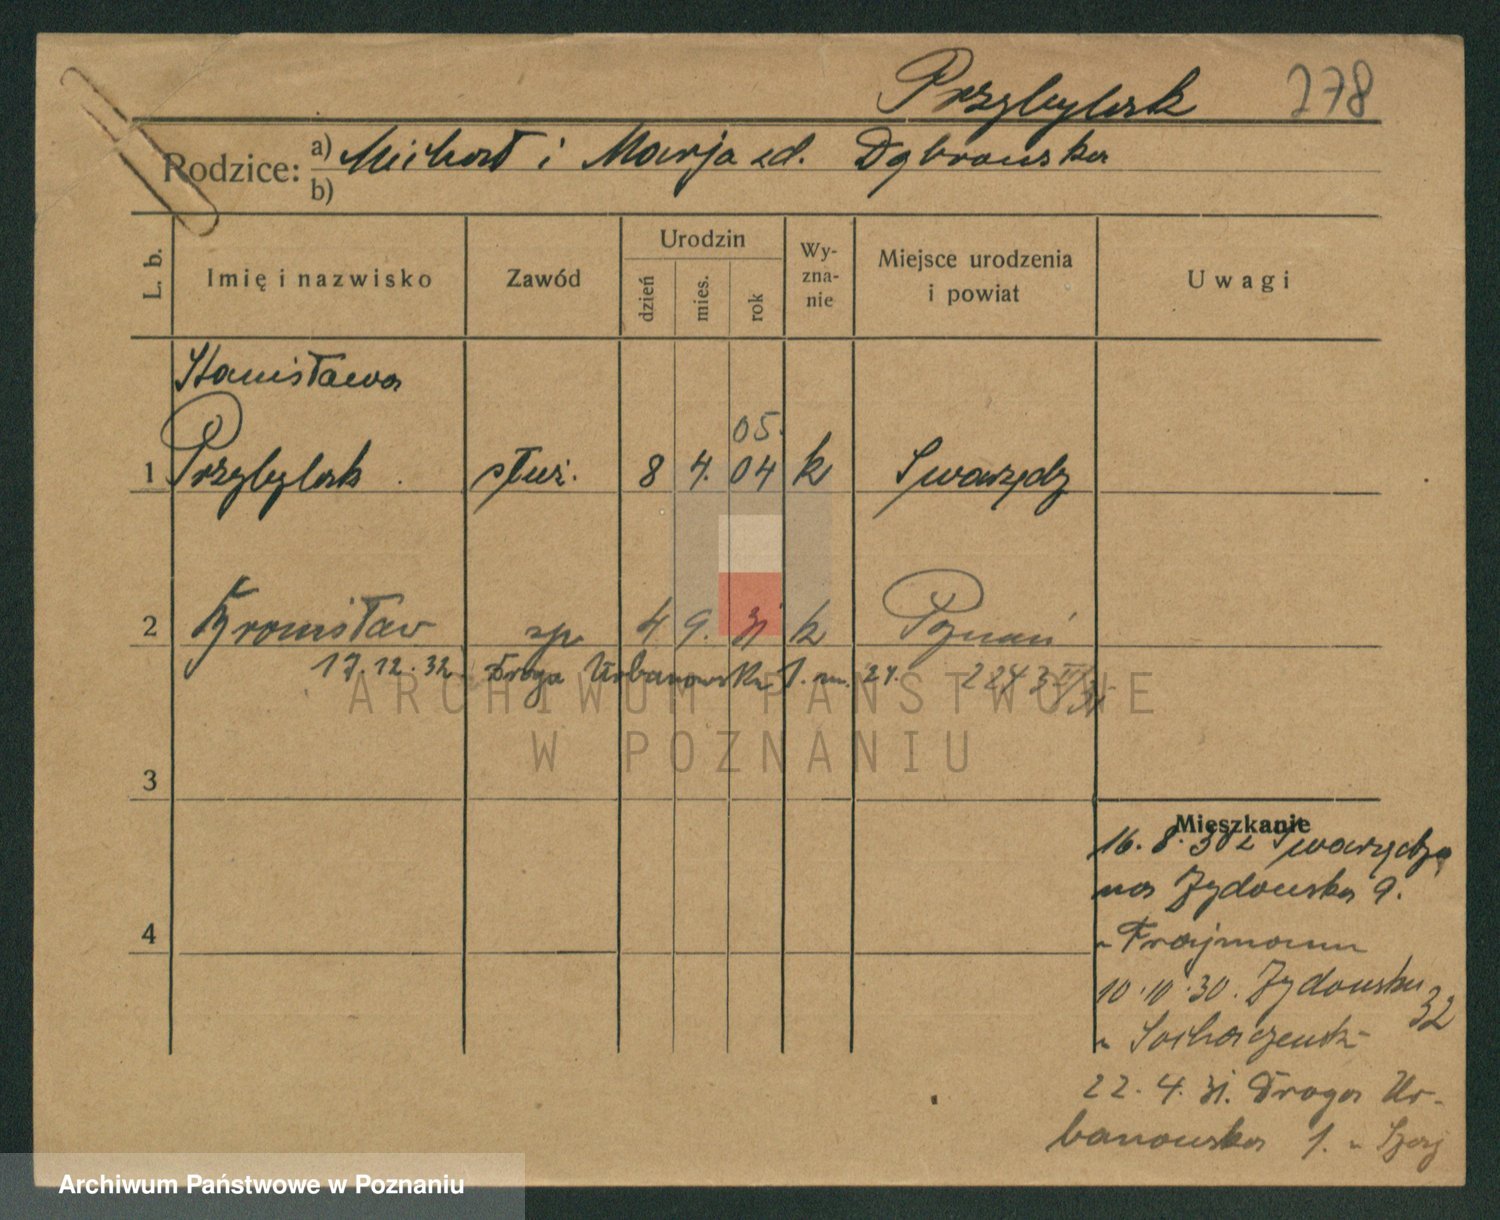 Przybylak 278
Rodzice: a) Michał i Marja zd. Dąbrowska
b)
L. b. Imię i nazwisko Zawód Urodzin dzień mies. rok Wy-zna-nie Miejsce urodzenia i powiat Uwagi
Stanisława
05.
1 Przybylak służ. 8 4. 04 k Swarzędz
2 Bronisław 4 9. 31 k Poznań
17.12.32. Droga Urbanowska 1. m. 24.
ARCHIWUM PAŃSTWOWE
W POZNANIU
3
Mieszkanie
16.8.30 z Swarzędza
na Żydowska 9.
4
u Frajmann
10.10.30. Żydowska 32
u
22.4.31. Droga Ur-
banowska 1. u
Archiwum Państwowe w Poznaniu